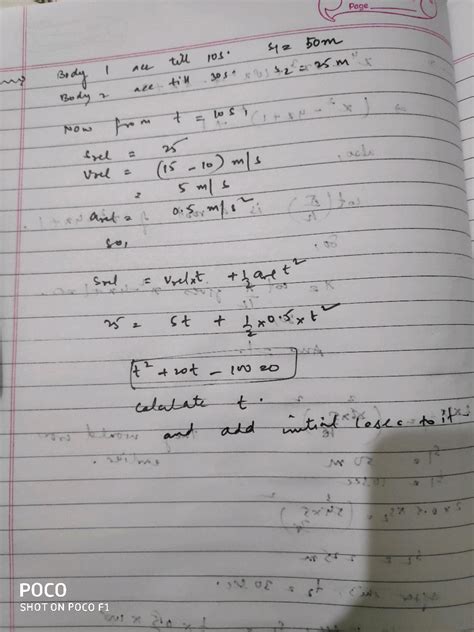 Page
Body 1 acc till 10s. S1 = 50m
Body 2 acc till 30s. S2 = 25m
Now from t = 10s,
Srel = 25
Vrel = (15 - 10) m/s
= 5 m/s
arel = 0.5 m/s²
so,
Srel = Vrel×t + 1/2 arel t²
25 = 5t + 1/2 × 0.5 × t²
t² + 20t - 100 = 0
calculate t.
and add initial 10sec to it
POCO
SHOT ON POCO F1